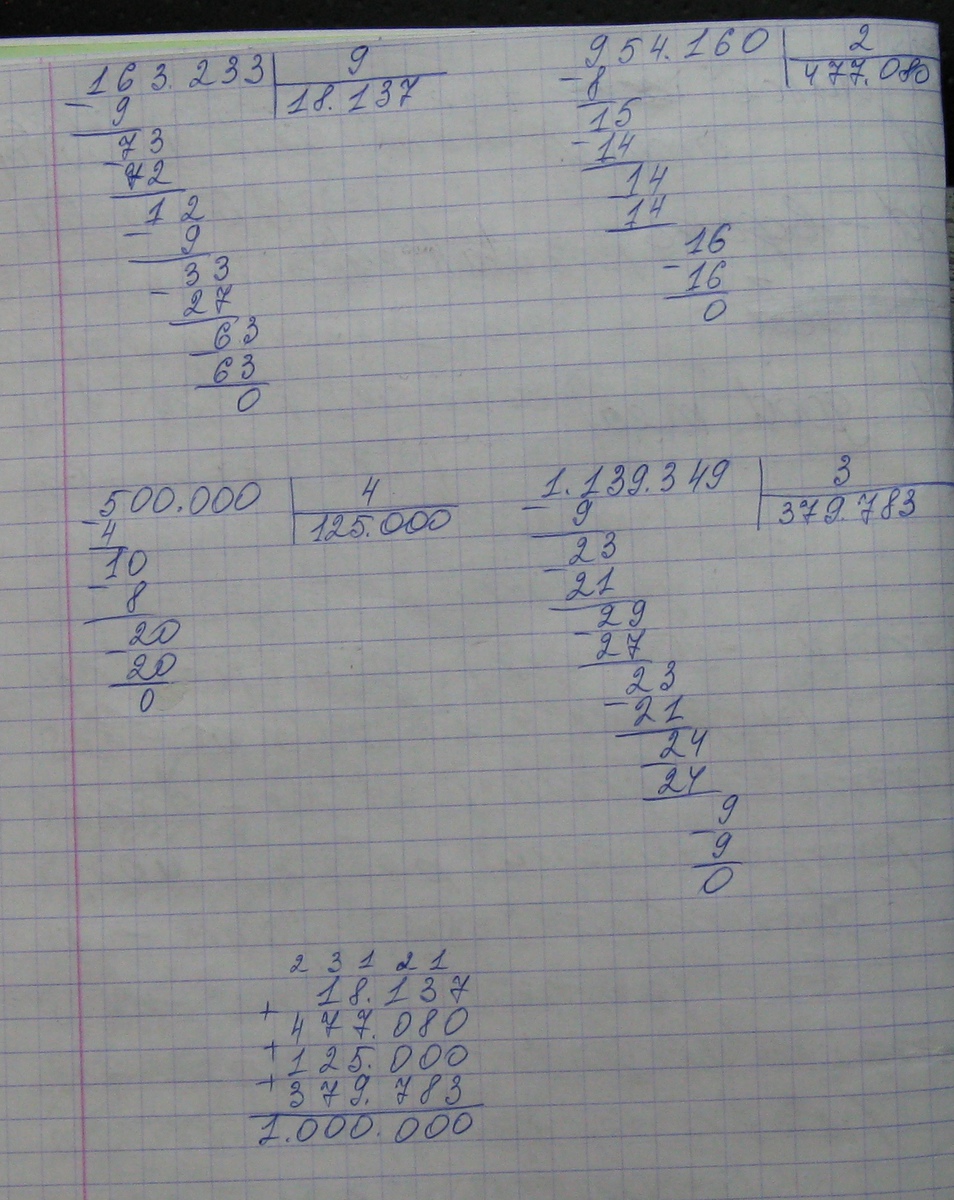 163.233 9
- 9 18.137
73
- 72
12
- 9
33
- 27
63
63
0
954.160 2
- 8 477.080
15
- 14
14
14
16
- 16
0
500.000 4
- 4 125.000
10
- 8
20
- 20
0
1.139.349 3
- 9 379.783
23
- 21
29
- 27
23
- 21
24
24
9
- 9
0
2 3 1 2 1
18.137
+ 477.080
+ 125.000
+ 379.783
1.000.000